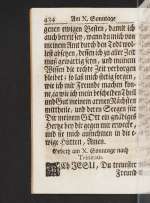 424 Am X. Sonntage
genen ewigen Besten, damit ich
auch bereit sey, wann du mich von
meinem Amt durch den Tod wol-
lest absetzen, dessen ich zu aller Zeit
muß gewärtig seyn, und meinem
Wissen die rechte Zeit verborgen
bleibet: so laß mich stetig sorgen,
wie ich mir Freunde machen kön-
ne, so wie ich mein bescheiden Theil
und Gut meinem armen Nächsten
mittheile, und deren Seegen für
Die meinem GOtt ein gnädiges
Hertze bey dir gegen mir erwecke,
und sie mich aufnehmen in die e-
wige Hütten, Amen.
Gebeth am X. Sonntage nach
Trinitatis.
Ach JESU, Du treuster
Freund